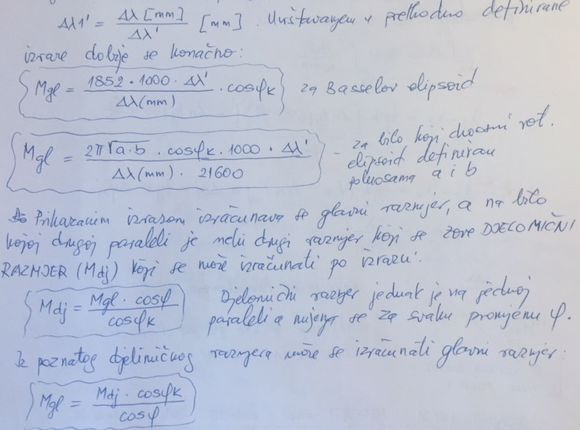 Δλ1' = Δλ [mm] / Δλ' [mm]. Uvrštavanjem u prethodno definirane
izraze dobije se konačno:
Mgl = 1852 • 1000 • Δλ' / Δλ(mm) • cosφk za Basselov elipsoid
Mgl = 2π√a•b • cosφk • 1000 • Δλ' / Δλ(mm) • 21600 - za bilo koji dvoosni rot.
elipsoid definiran
poluosama a i b
Prikazanim izrazom izračunava se glavni razmjer, a na bilo
kojoj drugoj paraleli je neki drugi razmjer koji se zove DJELOMIČNI
RAZMJER (Mdj) koji se može izračunati po izrazu:
Mdj = Mgl • cosφ / cosφk Djelomični razmjer jednak je na jednoj
paraleli a mijenja se za svaku promjenu φ.
Iz poznatog djelimičnog razmjera može se izračunati glavni razmjer:
Mgl = Mdj • cosφk / cosφ